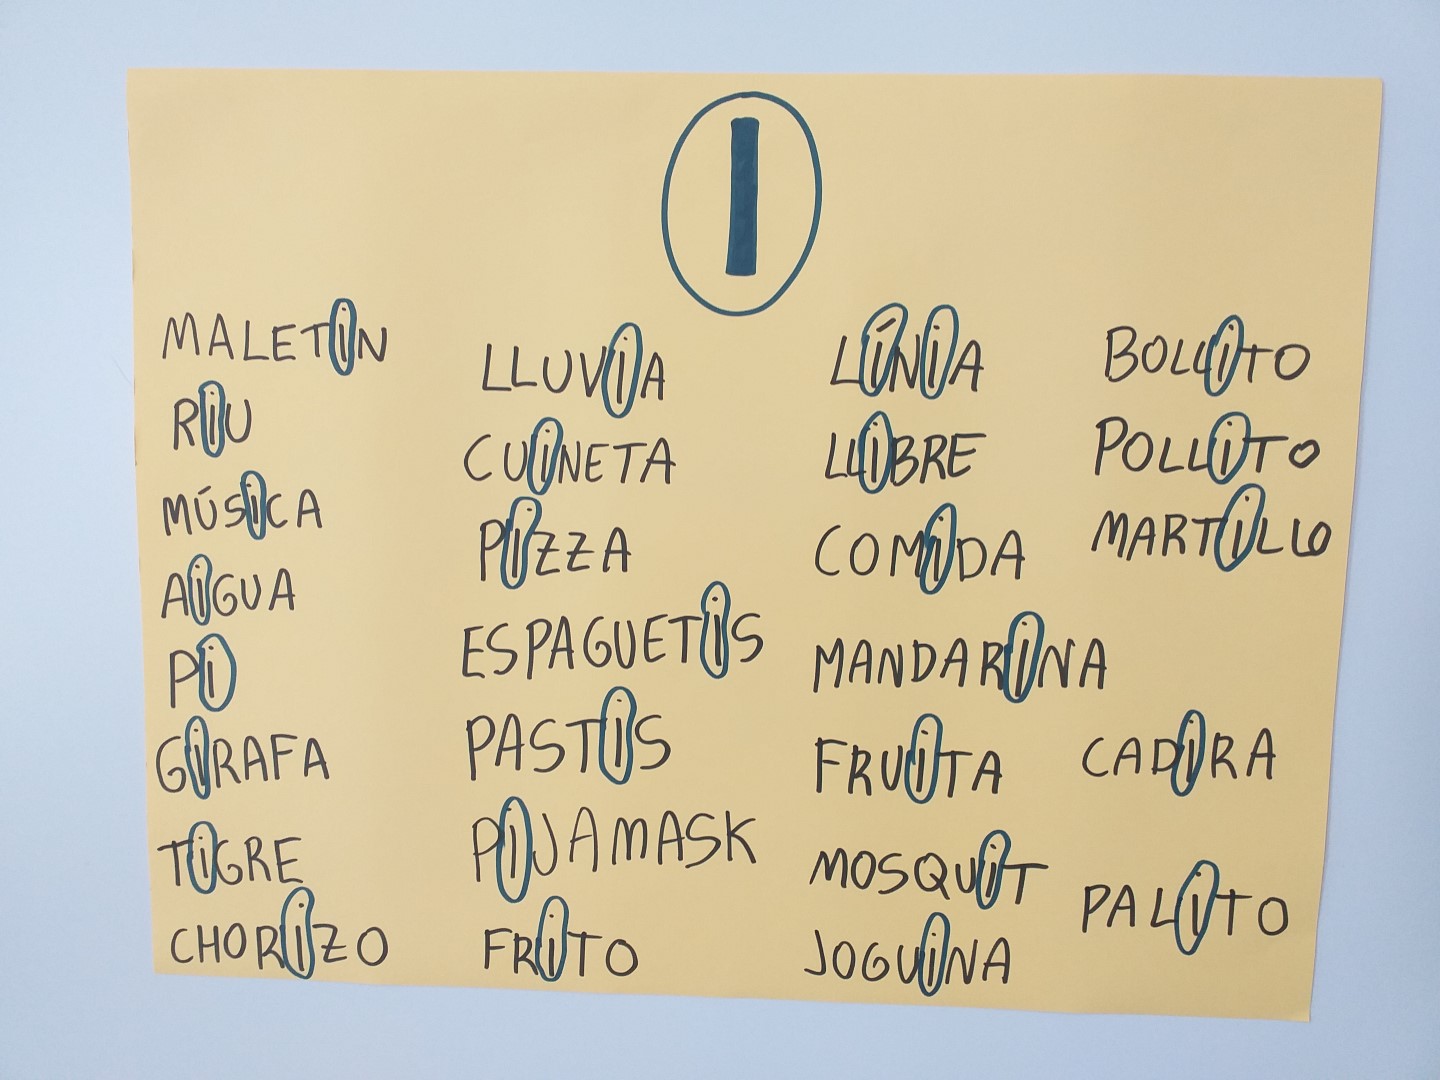 I
MALETiN
RiU
MÚSiCA
AiGUA
Pi
GiRAFA
TiGRE
CHORiZO
LLUViA
CUiNETA
PiZZA
ESPAGUETiS
PASTiS
PiJAMASK
FRiTO
LÍNiA
LLiBRE
COMiDA
MANDARiNA
FRUiTA
MOSQUiT
JOGUiNA
BOLLiTO
POLLiTO
MARTiLLO
CADiRA
PALiTO